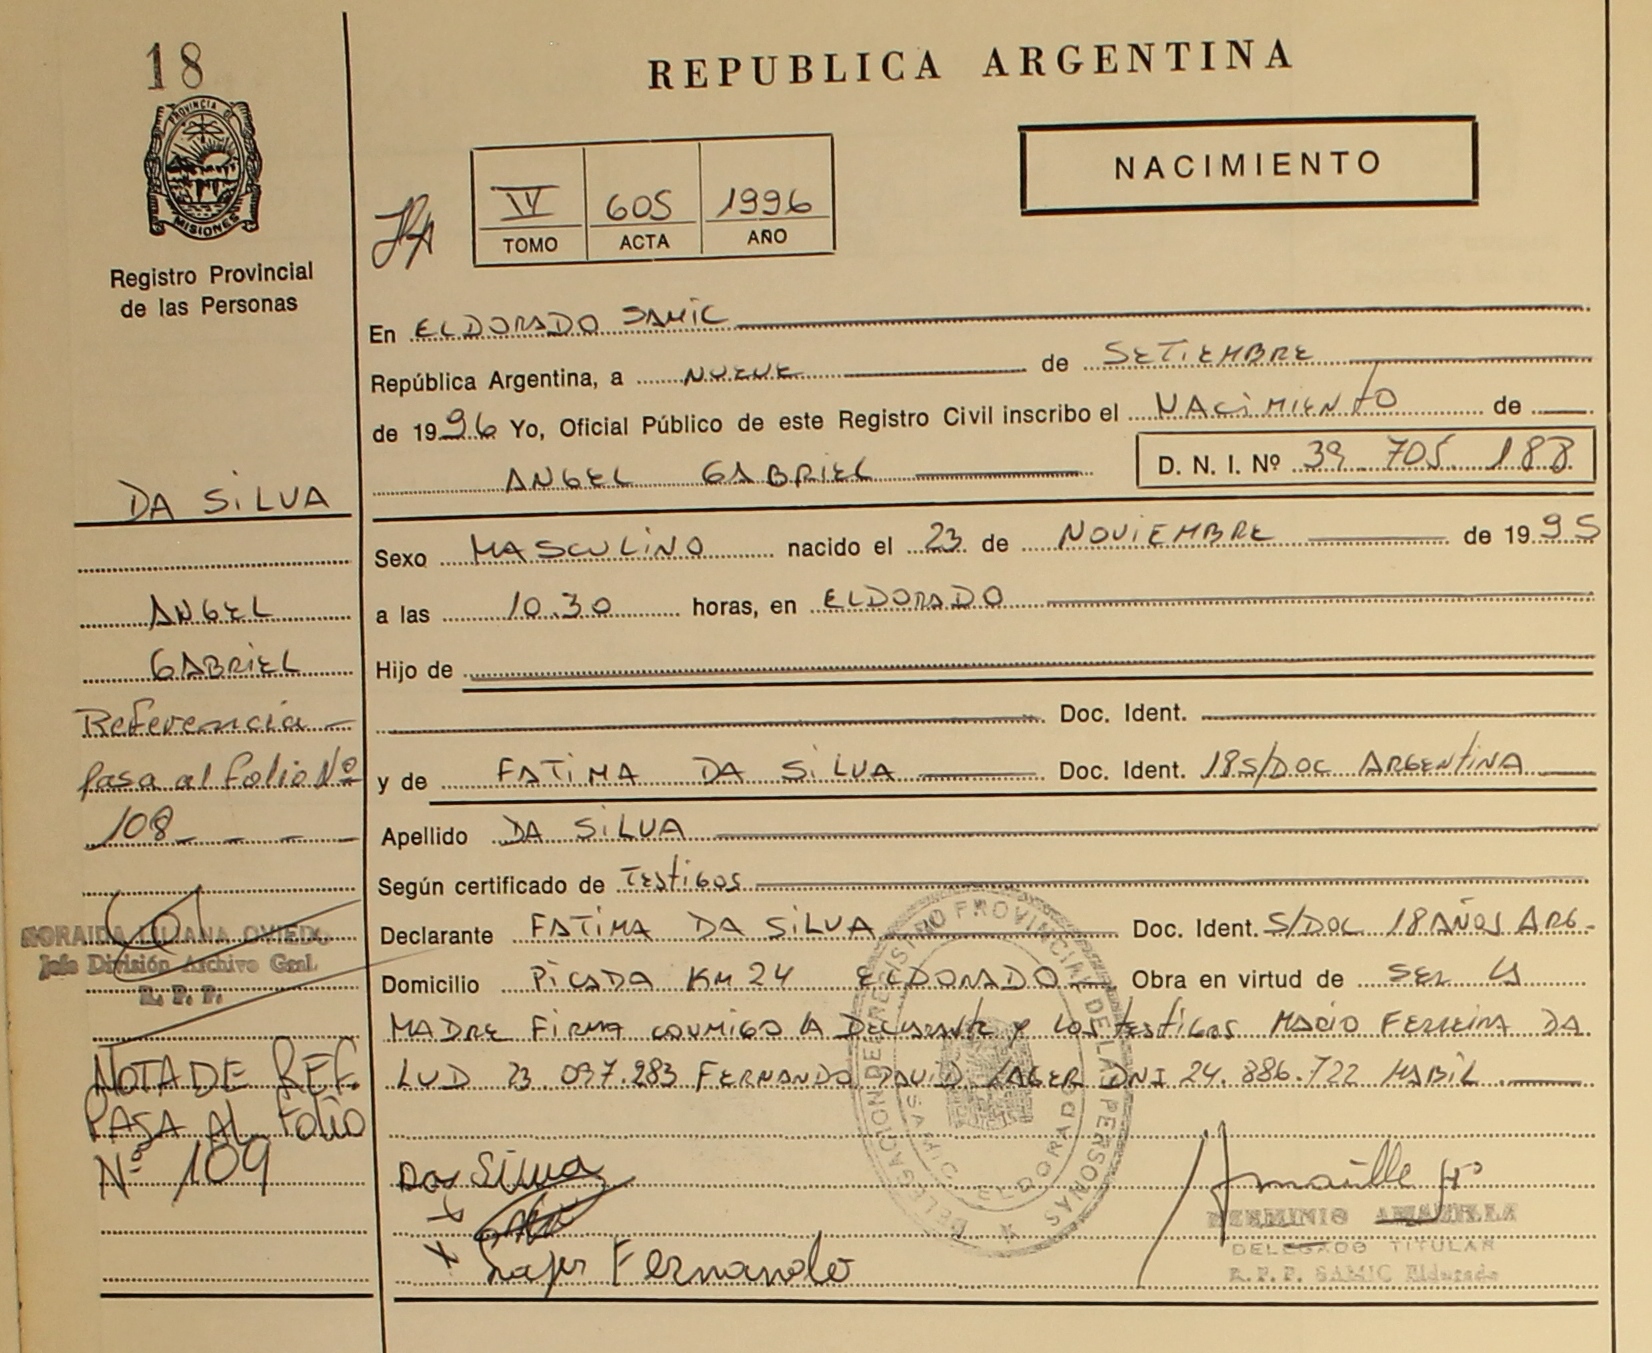 18
REPUBLICA ARGENTINA
PROVINCIA DE
MISIONES
Registro Provincial
de las Personas
NACIMIENTO
IV 605 1996
TOMO ACTA AÑO
En ELDORADO SAMIC
República Argentina, a NUEVE de SETIEMBRE
de 1996 Yo, Oficial Público de este Registro Civil inscribo el NACIMIENTO de
ANGEL GABRIEL
D. N. I. Nº 39 705 188
DA SILVA
ANGEL
GABRIEL
Sexo MASCULINO nacido el 23 de NOVIEMBRE de 1995
a las 10.30 horas, en ELDORADO
Hijo de
Doc. Ident.
y de FATIMA DA SILVA Doc. Ident. 18 S/DOC ARGENTINA
Apellido DA SILVA
Según certificado de TESTIGOS
Declarante FATIMA DA SILVA Doc. Ident. S/DOC 18 AÑOS ARG-
Domicilio PICADA KM 24 ELDORADO Obra en virtud de SER LA
MADRE FIRMA CONMIGO LA DECLARANTE Y LOS TESTIGOS MARIO FERREIRA DA
LUD 23 037.283 FERNANDO DAVID LAGER DNI 24.886.722 HABIL
Referencia
pasa al folio Nº
108
SORAIDA LILIANA OVIEDO
Jefe División Archivo Gral.
R. P. P.
NOTA DE REF.
PASA AL FOLIO
Nº 109
DELEGACION DEL REGISTRO PROVINCIAL DE LAS PERSONAS
SAMIC. ELDORADO
Da Silva
Lager Fernando
HERMINIO AMARILLA
DELEGADO TITULAR
R. P. P. SAMIC Eldorado